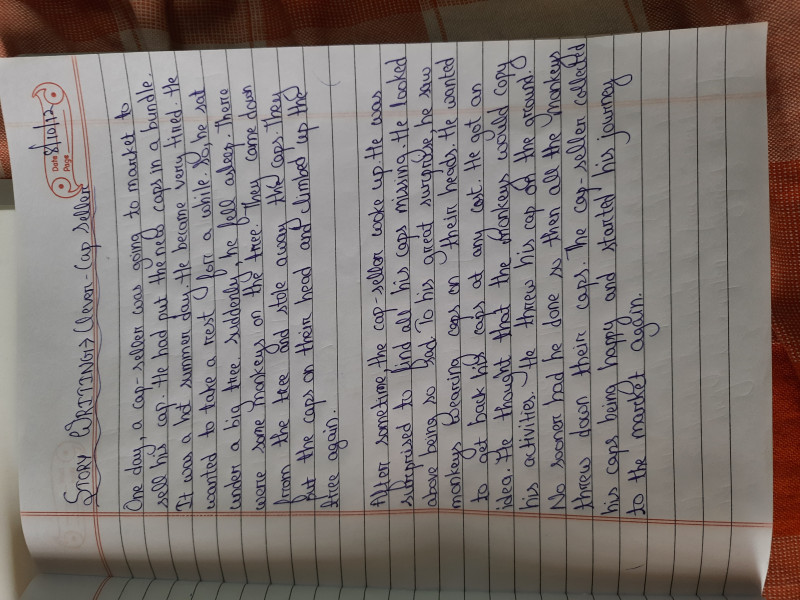 Date 8/10/12
Page
STORY WRITING:→ Clever-Cap Seller
One day, a cap-seller was going to market to
sell his cap. He had put the new caps in a bundle.
It was a hot summer day. He became very tired. He
wanted to take a rest for a while. So, he sat
under a big tree. suddenly, he fell asleep. There
were some monkeys on the tree. They came down
from the tree and stole away the caps. They
put the caps on their head and climbed up the
tree again.
After sometime, the cap-seller woke up. He was
surprised to find all his caps missing. He looked
above being so sad. To his great surprise, he saw
monkeys wearing caps on their heads. He wanted
to get back his caps at any cost. He got an
idea. He thought that the monkeys would copy
his activities. He threw his cap on the ground.
No sooner had he done so then all the monkeys
threw down their caps. The cap-seller collected
his caps being happy and started his journey
to the market again.